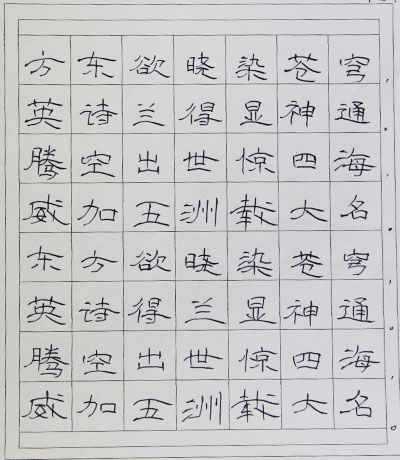 方东欲晓染苍穹，
英诗兰得显神通。
腾空出世惊四海，
威加五洲载大名。
东方欲晓染苍穹，
英诗得兰显神通。
腾空出世惊四海，
威加五洲载大名。